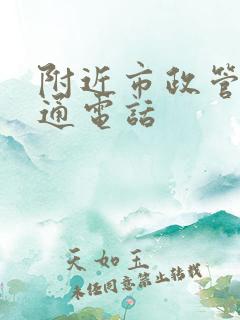 附近市政管
通電話
天如玉
未经同意禁止转载